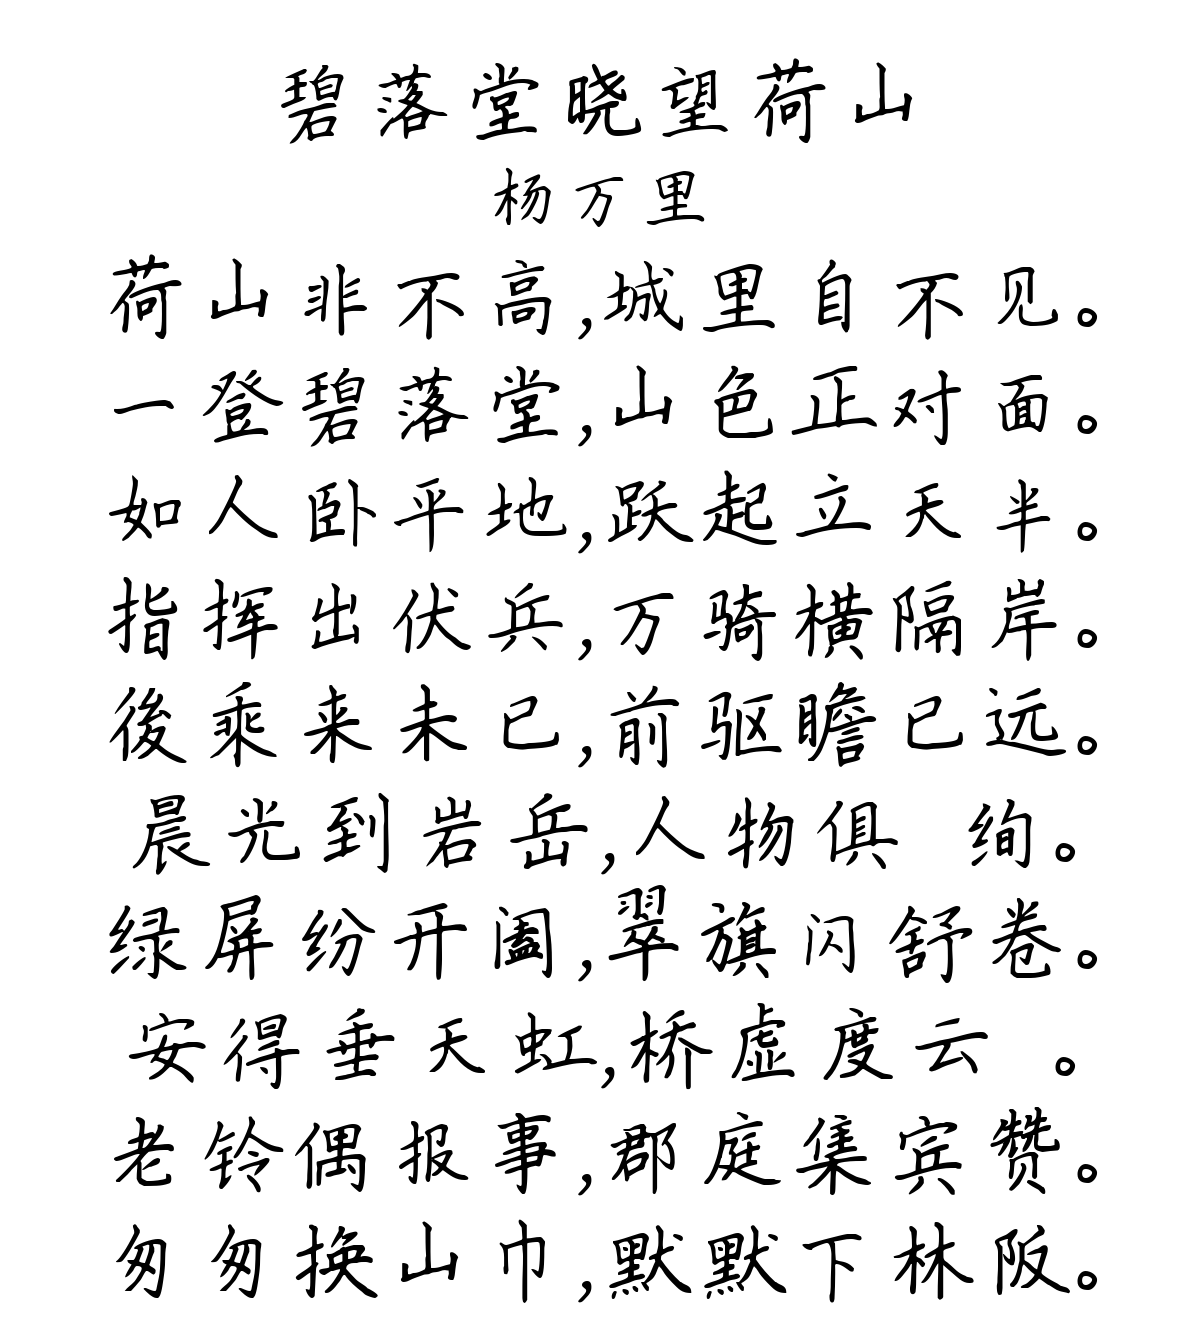 碧落堂晓望荷山
杨万里
荷山非不高,城里自不见。
一登碧落堂,山色正对面。
如人卧平地,跃起立天半。
指挥出伏兵,万骑横隔岸。
後乘来未已,前驱瞻已远。
晨光到岩岳,人物俱 绚。
绿屏纷开阖,翠旗闪舒卷。
安得垂天虹,桥虚度云 。
老铃偶报事,郡庭集宾赞。
匆匆换山巾,默默下林阪。